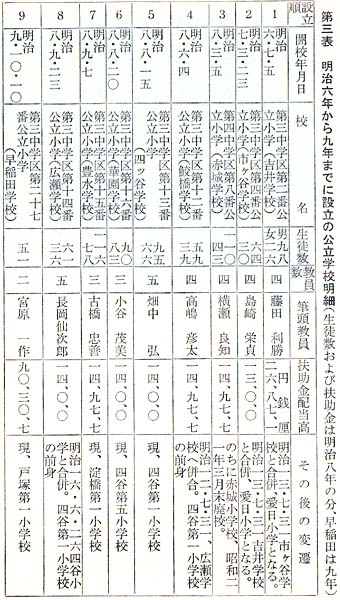 第三表 明治六年から九年までに設立の公立学校明細(生徒数および扶助金は明治八年の分、早稲田は九年)
設立順 開校年月日 校名 生徒数 教員数 筆頭教員 扶助金配当高 その後の変遷
1 明治六・七・五 第三中学区第二番公立小学(吉井学校) 男九八 女二六 四 藤田利勝 円銭厘 二六、八七、一 明治一三・七・三一市ヶ谷学校と合併、愛日小学となる。
2 明治七・三・二三 第三中学区第四番公立小学(市ヶ谷学校) 六四 二三 四 島崎栄貞 一三、〇〇、〇 明治一三・七・三一吉井学校と合併、愛日小学となる。
3 明治八・三・五 第四中学区第八番公立小学(赤城学校) 一一〇 四〇 四 横瀬良知 一四、九七、七 のちに赤城小学校、昭和二一年三月末廃校。
4 明治八・六・四 第三中学区第十一番公立小学(鮫橋学校) 五九 三九 四 高嶋彦太 一四、九七、七 明治一二・七・三一、広瀬学校へ併合。四谷第一小学校の前身
5 明治八・八・一五 第三中学区第十三番公立小学(四ツ谷学校) 九五 六六 五 畑中弘 一四、〇〇、〇 現、四谷第一小学校
6 明治八・八・二〇 第三中学区第十六番公立小学(華園学校) 九〇 八三 三 小谷茂美 一四、〇〇、〇 現、四谷第五小学校
7 明治八・九・七 第三中学区第十五番公立小学(豊水学校) 一一六 七八 三 古橋忠善 一四、九七、七 現、淀橋第一小学校
8 明治八・九・二三 第三中学区第十四番公立小学(広瀬学校) 六一 三六 五 長岡仙次郎 一四、〇〇、〇 明治一六・六・二六四谷小学と合併。四谷第一小学校の前身
9 明治九・一〇・一〇 第三中学区第二十七番公立小学(早稲田学校) 五一 二 宮原一作 九〇、三〇、七 現、戸塚第一小学校